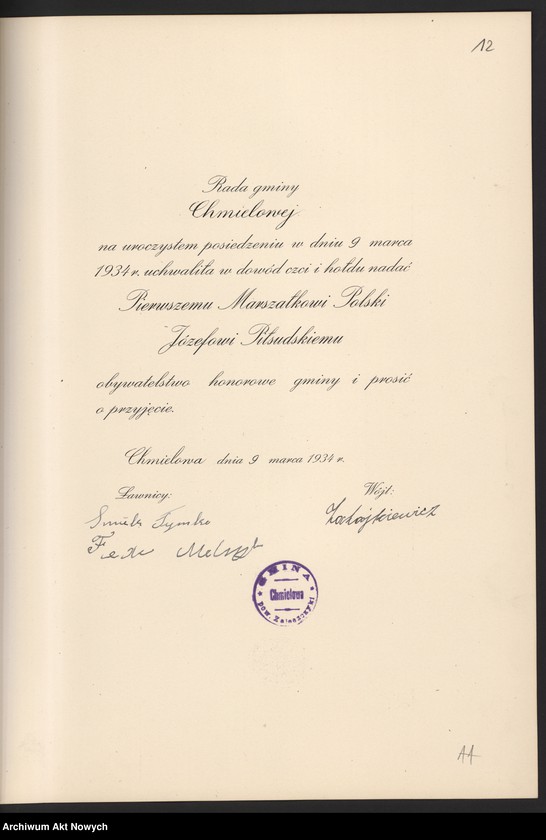 12
Rada gminy
Chmielowej
na uroczystem posiedzeniu w dniu 9 marca
1934 r. uchwaliła w dowód czci i hołdu nadać
Pierwszemu Marszałkowi Polski
Józefowi Piłsudskiemu
obywatelstwo honorowe gminy i prosić
o przyjęcie.
Chmielowa dnia 9 marca 1934 r.
Ławnicy:
Wójt:
Tymko
GMINA
Chmielowa
pow. Zaleszczyki
Archiwum Akt Nowych